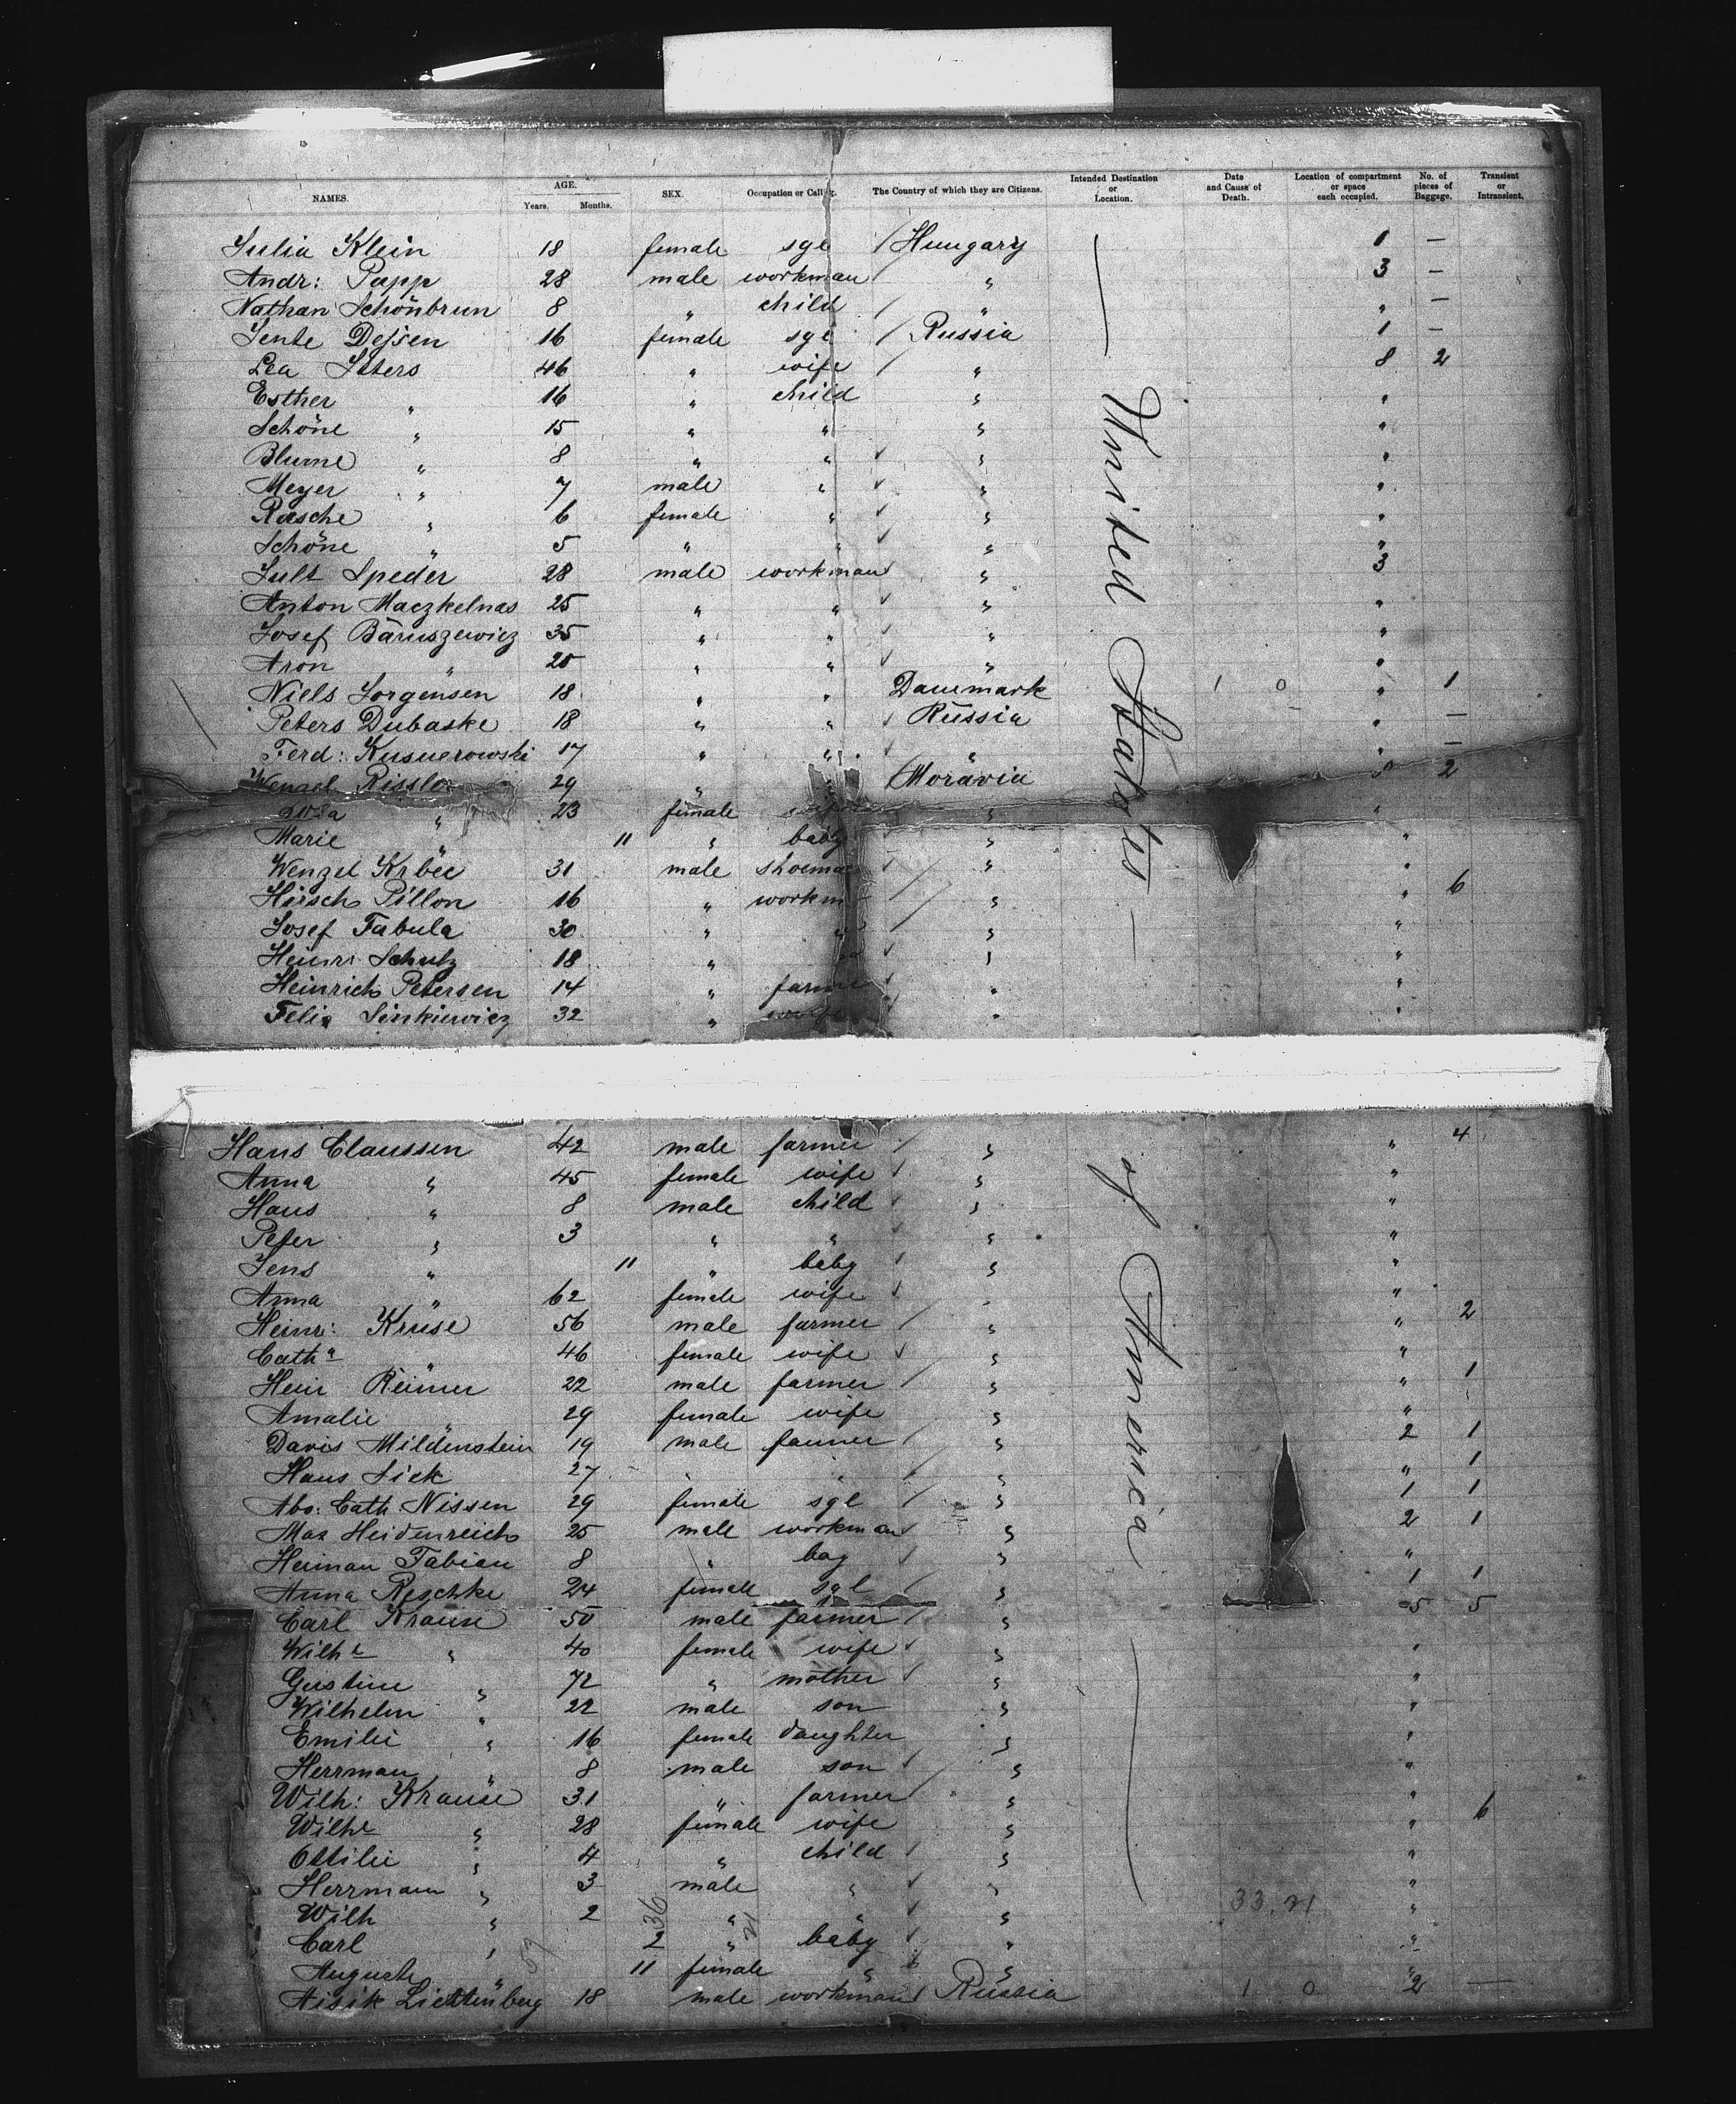 NAMES. AGE. Years. Months. SEX. Occupation or Calling. The Country of which they are Citizens. Intended Destination or Location. Date and Cause of Death. Location of compartment or space each occupied. No. of pieces of Baggage. Transient or Intransient.
Julia Klein 18 female sgl / Hungary 1 —
Andr: Papp 28 male workman / " 3 —
Nathan Schönbrun 8 " child / " " —
Jente 16 female sgl / Russia 1 —
Lea 46 " wife / " 8 2
Esther " 16 " child " "
Schöne " 15 " " " "
Blume " 8 " " ✓ " "
Meyer " 7 male " ✓ " "
Rasche " 6 female " ✓ " "
Schöne " 5 " " ✓ " "
Speder 28 male workman ✓ " 3
Anton Maczkelnas 25 " " ✓ " "
Josef Baruszewicz 35 " " ✓ " "
Aron " 25 " " ✓ " "
Niels Jorgensen 18 " " Danemark 1 0 " 1
Peters Dubaske 18 " " ✓ Russia " —
Ferd: 17 " " ✓ " " —
Wenzel 29 " " / Moravia " 2
" 23 female wife " "
Marie " 11 " baby ✓ " "
Wenzel 31 male ✓ " "
Hirsch Pillon 16 " / " " 6
Josef Fabula 30 " " / " "
Heinr: Schulz 18 " ✓ " "
Heinrich Petersen 14 " ✓ " "
Felix Sinkiewicz 32 " ✓ " "
United States
Hans Claussen 42 male farmer / " " 4
Anna " 45 female wife ✓ " "
Hans " 8 male child ✓ " "
Peter " 3 " " ✓ " "
Jens " 11 " baby ✓ " "
Anna " 62 female wife ✓ " "
Heinr: Kruse 56 male farmer / " " 2
Cath a " 46 female wife ✓ " "
Heinr Reimer 22 male farmer / " " 1
Amalie " 29 female wife " "
Davis Mildenstein 19 male farmer / " 2 1
Hans Sick 27 " " / " " 1
Cath Nissen 29 female sgl / " 1 1
Max Heidenreich 25 male workman ✓ " 2 1
Herman Fabian 8 " boy ✓ " "
Anna Reschke 24 female sgl / " 1 1
Carl Krause 50 male farmer / " 5 5
Wilh e " 40 female wife ✓ " "
Gustine " 72 " mother ✓ " "
Wilhelm " 22 male son " "
Emilie " 16 female daughter " "
Herrman " 8 male son ✓ " "
Wilh: Krause 31 " farmer / " " 6
Wilhe " 28 female wife " "
Ottilie " 4 " child ✓ " "
Herrmann " 3 male " ✓ " "
Wilh " 2 " " ✓ " "
Carl " 2 " baby ✓ " "
Auguste " 11 female " " "
Aisik Lichtenberg 18 male workman / Russia 1 0 2 —
of America
33.21
236
57